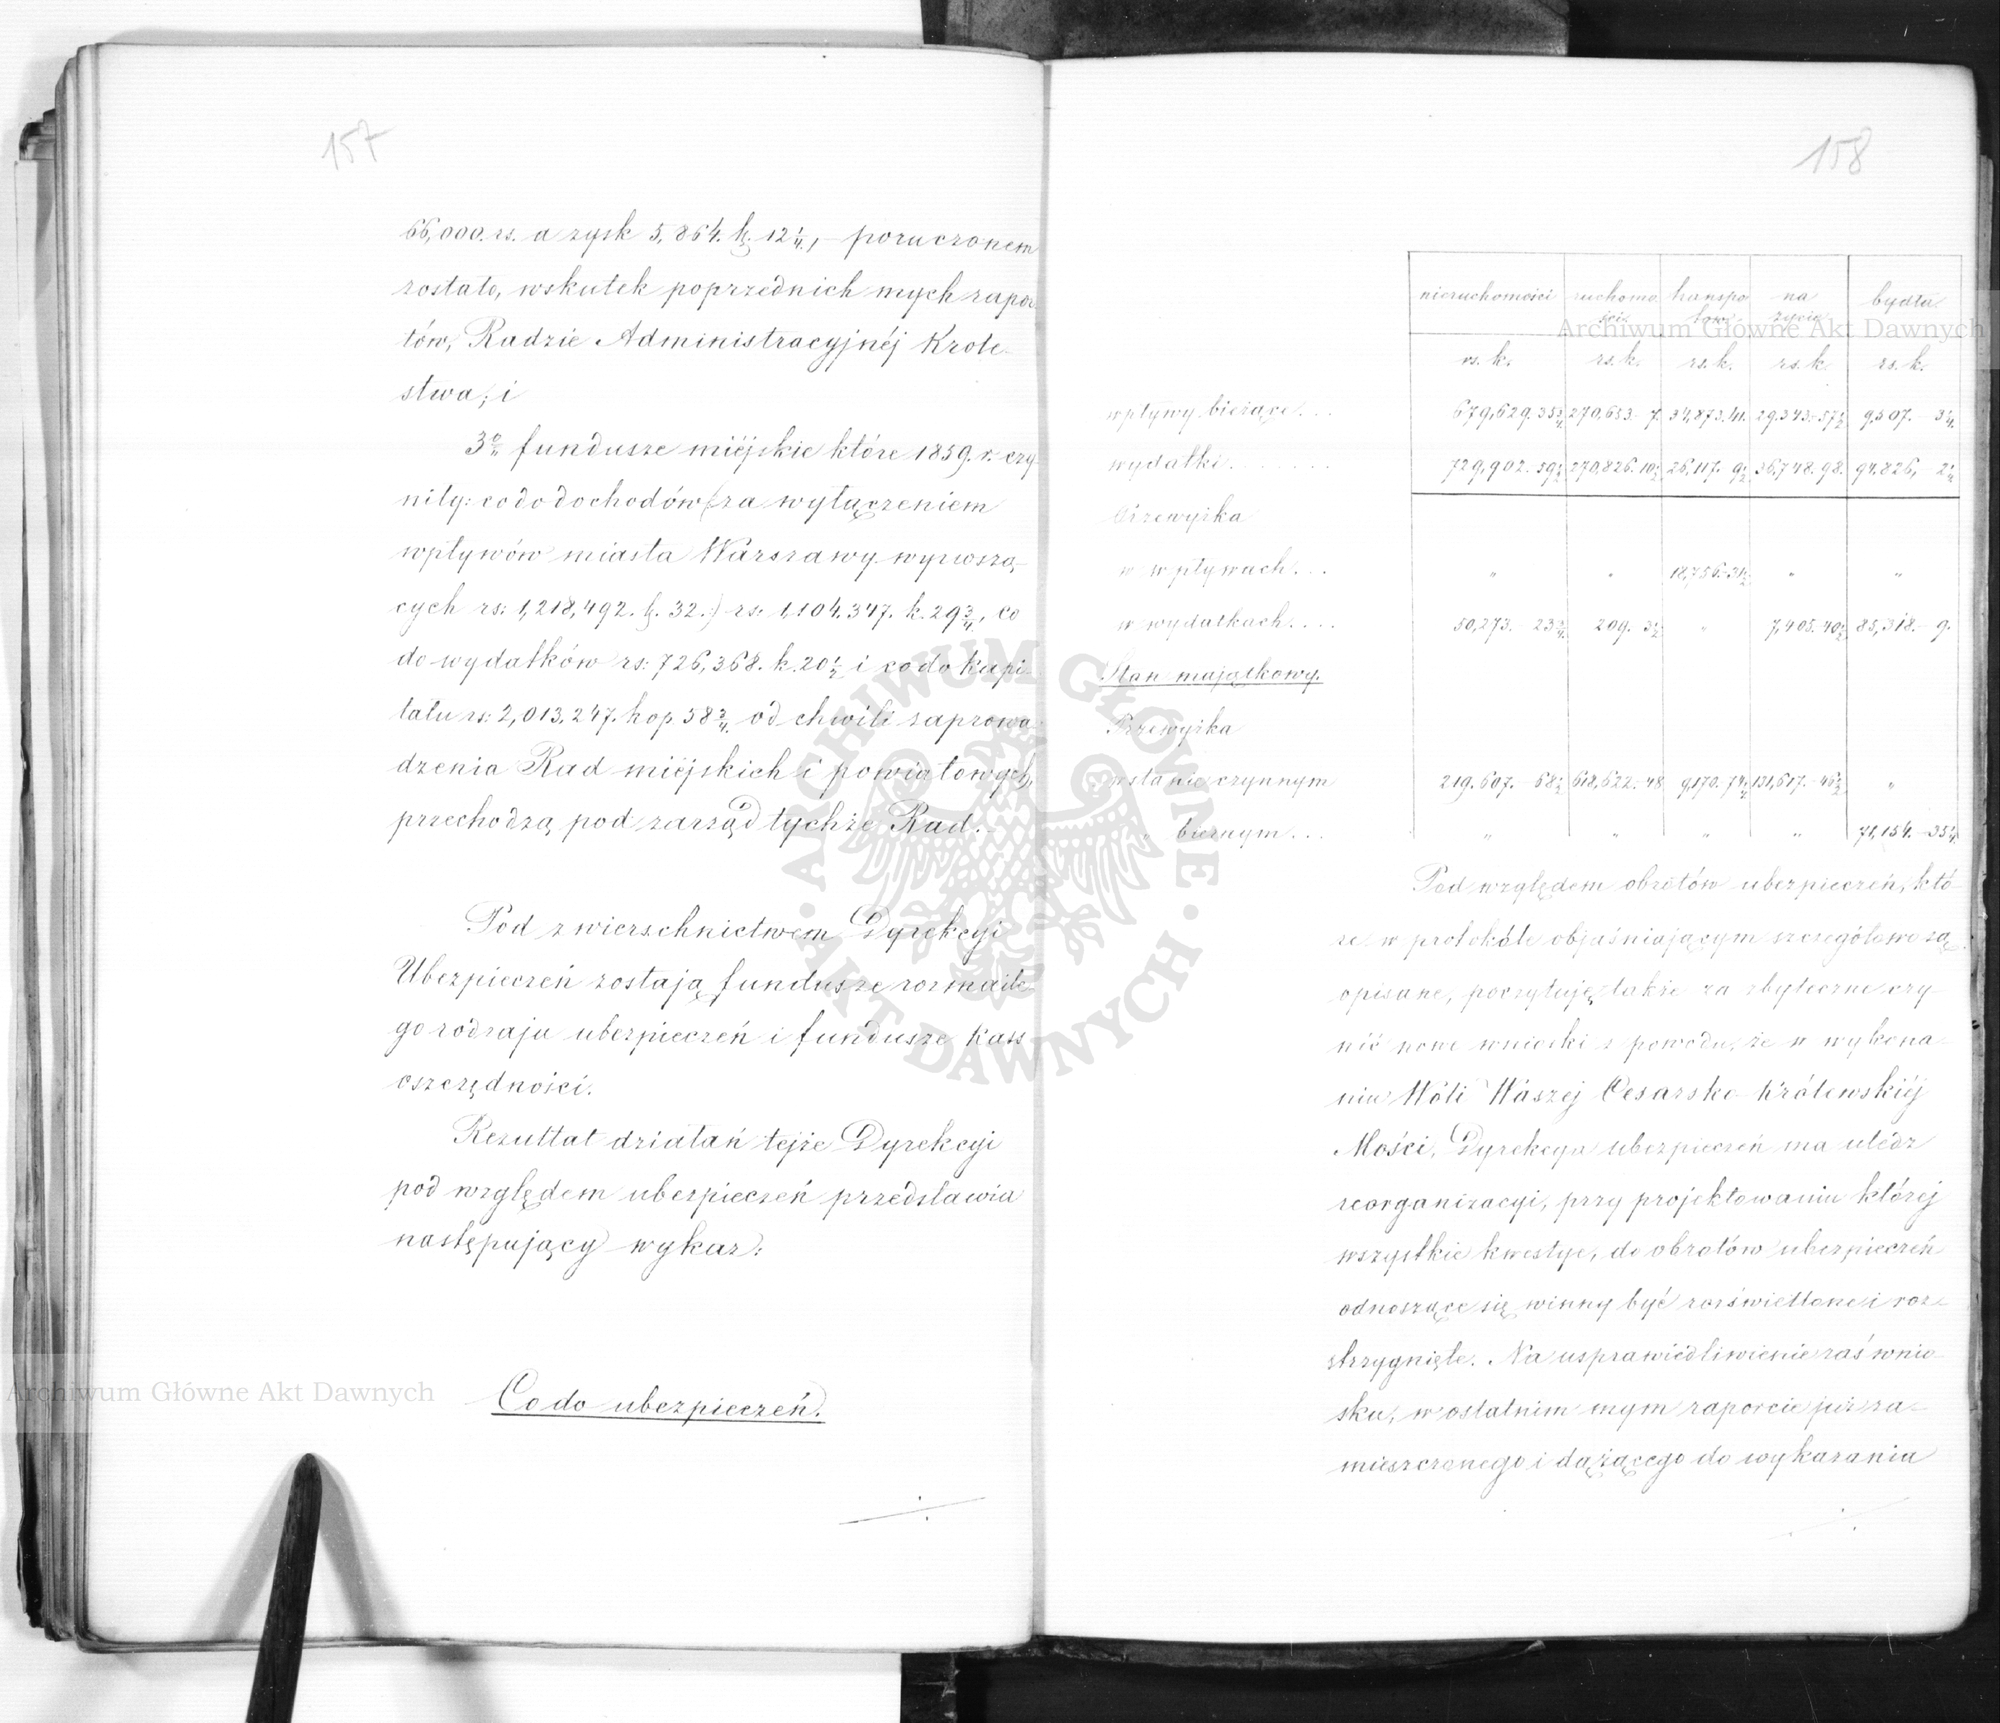 157
66,000. rs. a zysk 5,864. k. 12 1/4, – poruczonem
zostało, wskutek poprzednich mych rapor
tów, Radzie Administracyjnéj Króle-
stwa; i
3o fundusze miéjskie które 1859. r. czy-
niły: co do dochodów (za wyłączeniem
wpływów miasta Warszawy wynoszą-
cych rs: 1,218,492. k. 32.) rs: 1,104.347. k. 29 3/4, co
do wydatków rs: 726,368. k. 20 1/2 i co do kapi-
tału rs: 2,013,247. kop 58 3/4 od chwili zaprowa-
dzenia Rad miéjskich i powiatowych,
przechodzą pod zarząd tychże Rad. –
Pod zwierzchnictwem Dyrekcyi
Ubezpieczeń zostają fundusze rozmaite-
go rodzaju ubezpieczeń i fundusze Kass
oszczędności.
Rezultat działań tejże Dyrekcyi
pod względem ubezpieczeń przedstawia
następujący wykaz:
Co do ubezpieczeń.
158
nieruchomości ruchomo transpo na bydła
ści tów życie
rs. k. rs. k. rs. k. rs. k. rs. k.
wpływy bieżące . . . 679,629. 35 3/4 270,653. 7. 34,873. 41. 29.343. 57 1/2 9,507. – 3 1/4
wydatki . . . . . . . 729,902. 59 1/2 270,826. 10 1/2 26,117. 9 1/2 36,748. 98. 94,826, 2 1/4
Przewyżka
w wpływach . . . " " 18,756. 31 1/2 " "
w wydatkach . . . . 50,273. – 23 3/4 209. 3 1/2 " 7,405. 40 1/2 85,318. – 9.
Stan majątkowy.
Przewyżka
w stanie czynnym 219.607. – 68 1/2 618,622. – 48 9,170. 74 1/4 131,617. – 46 1/2 "
" biernym . . . " " " " 71,154. – 35 1/4
Pod względem obrotów ubezpieczeń, któ-
re w protokóle objaśniającym szczegółowo są
opisane, poczytuję także za zbyteczne czy-
nić nowe wnioski z powodu, że w wykona-
niu Woli Waszej Cesarsko-Królewskiéj
Mości, Dyrekcya ubezpieczeń ma uledz
reorganizacyi, przy projektowaniu której
wszystkie kwestye, do obrotów ubezpieczeń
odnoszące się winny być rozświetlone i roz-
strzygnięte. Na usprawiedliwienie zaś wnio-
sku, w ostatnim mym raporcie już za-
mieszczonego i dążącego do wykazania
Archiwum Główne Akt Dawnych
Archiwum Główne Akt Dawnych
ARCHIWUM GŁÓWNE · AKT DAWNYCH ·